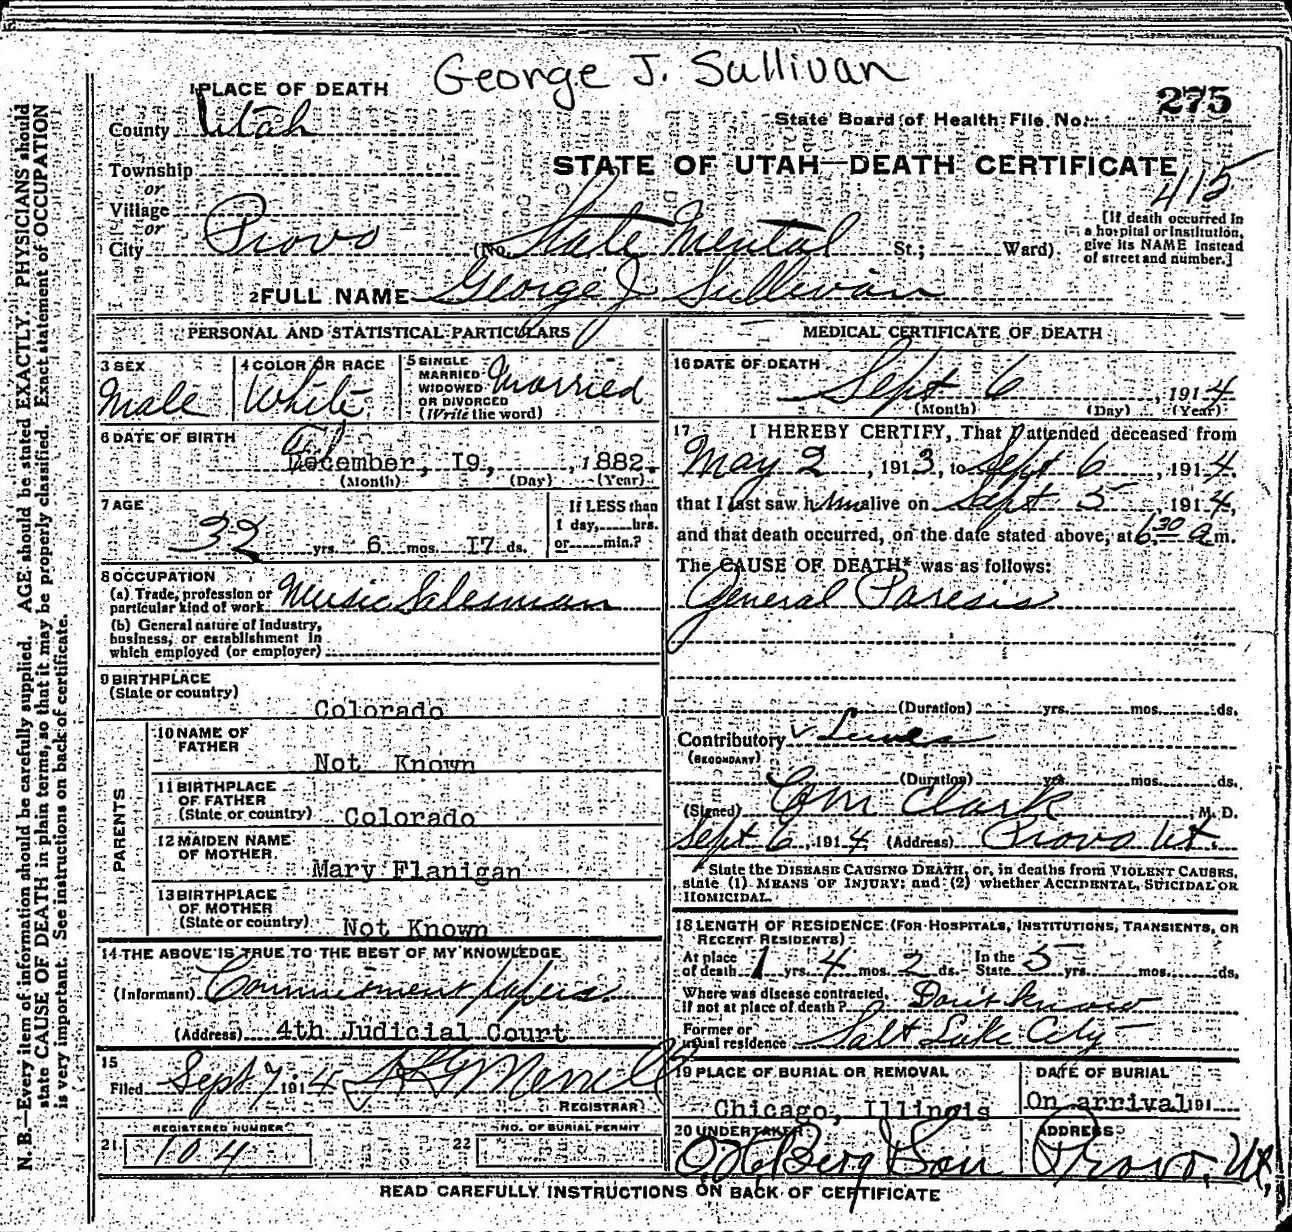 George J. Sullivan
1 PLACE OF DEATH
275
County Utah
State Board of Health File No.
Township
STATE OF UTAH—DEATH CERTIFICATE
or
415
Village
or
[If death occurred in a hospital or institution, give its NAME instead of street and number.]
City Provo (No. State Mental St.; Ward)
2 FULL NAME George J Sullivan
PERSONAL AND STATISTICAL PARTICULARS
3 SEX Male
4 COLOR OR RACE White
5 SINGLE MARRIED WIDOWED OR DIVORCED (Write the word) Married
6 DATE OF BIRTH
December, 19, 1882.
(Month) (Day) (Year)
7 AGE
32 yrs. 6 mos. 17 ds.
If LESS than 1 day, hrs. or min.?
8 OCCUPATION
(a) Trade, profession or particular kind of work Music Salesman
(b) General nature of industry, business, or establishment in which employed (or employer)
9 BIRTHPLACE
(State or country) Colorado
PARENTS
10 NAME OF FATHER Not Known
11 BIRTHPLACE OF FATHER (State or country) Colorado
12 MAIDEN NAME OF MOTHER Mary Flanigan
13 BIRTHPLACE OF MOTHER (State or country) Not Known
14 THE ABOVE IS TRUE TO THE BEST OF MY KNOWLEDGE
(Informant) Commitment papers.
(Address) 4th Judicial Court
15
Filed Sept 7 1914 Merrill
REGISTRAR
REGISTERED NUMBER
21 104
NO. OF BURIAL PERMIT
22
MEDICAL CERTIFICATE OF DEATH
16 DATE OF DEATH
Sept 6, 1914
(Month) (Day) (Year)
17 I HEREBY CERTIFY, That I attended deceased from
May 2, 1913, to Sept 6, 1914,
that I last saw him alive on Sept 5 1914,
and that death occurred, on the date stated above, at 6.30 a m.
The CAUSE OF DEATH* was as follows:
General Paresis
(Duration) yrs. mos. ds.
Contributory Lewes
(SECONDARY)
(Duration) yrs. mos. ds.
(Signed) Clark, M. D.
Sept 6, 1914 (Address) Provo Ut.
* State the DISEASE CAUSING DEATH, or, in deaths from VIOLENT CAUSES, state (1) MEANS OF INJURY; and (2) whether ACCIDENTAL, SUICIDAL OR HOMICIDAL.
18 LENGTH OF RESIDENCE (FOR HOSPITALS, INSTITUTIONS, TRANSIENTS, OR RECENT RESIDENTS)
At place of death 1 yrs. 4 mos. 2 ds. In the State 5 yrs. mos. ds.
Where was disease contracted, if not at place of death? Don't know
Former or usual residence Salt Lake City
19 PLACE OF BURIAL OR REMOVAL
Chicago, Illinois
DATE OF BURIAL
On arrival 191
20 UNDERTAKER
Berg Son
ADDRESS
Provo, Ut,
READ CAREFULLY INSTRUCTIONS ON BACK OF CERTIFICATE
N. B.—Every item of information should be carefully supplied. AGE should be stated EXACTLY. PHYSICIANS should
state CAUSE OF DEATH in plain terms, so that it may be properly classified. Exact statement of OCCUPATION
is very important. See instructions on back of certificate.